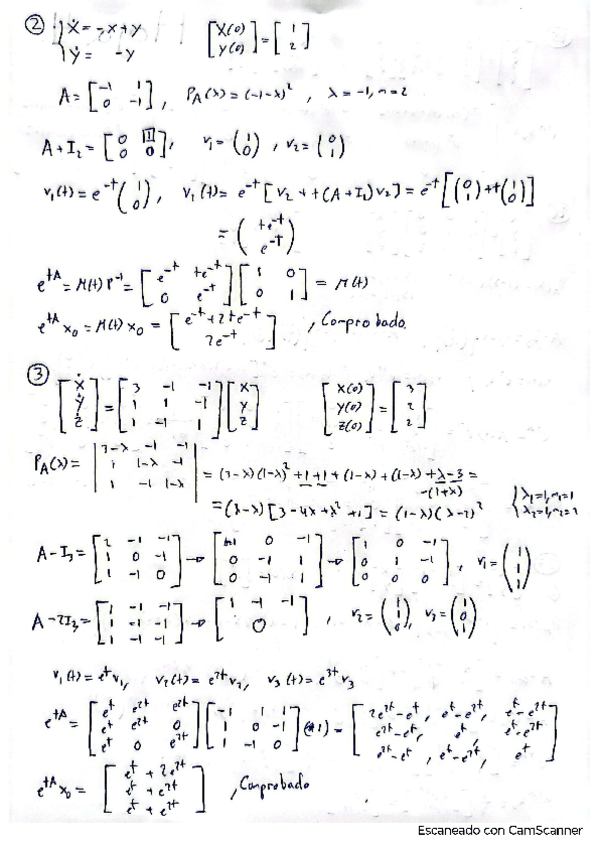 ② { ẋ = -x+y    [x(0) y(0)] = [1 2]
ẏ = -y
A = [-1 1; 0 -1], P_A(λ) = (-1-λ)², λ = -1, n=2
A+I₂ = [0 1; 0 0], v₁ = (1 0), v₂ = (0 1)
v₁(t) = e^-t (1 0), v₁(t) = e^-t [v₂ + t(A+I₂)v₂] = e^-t [(0 1)+t(1 0)]
= (te^-t e^-t)
e^tA = M(t) P^-1 = [e^-t te^-t; 0 e^-t] [1 0; 0 1] = M(t)
e^tA x₀ = M(t) x₀ = [e^-t+2te^-t; 2e^-t], Comprobado.
③
[ẋ ẏ ż] = [3 -1 -1; 1 1 -1; 1 -1 1] [x y z]    [x(0) y(0) z(0)] = [3 2 2]
P_A(λ) = |3-λ -1 -1; 1 1-λ -1; 1 -1 1-λ| = (3-λ)(1-λ)² +1+1 + (1-λ) + (1-λ) + λ-3 =
-(1+λ)
[3-4λ+λ²+1] = (1-λ)(λ-2)²
A-I₃ = [2 -1 -1; 1 0 -1; 1 -1 0] → [0 -1 1; 0 -1 1] → [1 0 -1; 0 1 -1; 0 0 0], v₁ = (1 1 1)
A-2I₃ = [1 -1 -1; 1 -1 -1; 1 -1 -1] → [1 -1 -1; 0], v₂ = (1 1 0), v₃ = (1 0 1)
v₁(t) = e^t v₁, v₂(t) = e^2t v₂, v₃(t) = e^2t v₃
e^tA = [e^t e^2t e^2t; e^t e^2t 0; e^t 0 e^2t] [-1 1 1; 1 0 -1; 1 -1 0] = [2e^2t-e^t, e^t-e^2t, e^t-e^2t; e^2t-e^t, e^t, e^t-e^2t; e^2t-e^t, e^t-e^2t, e^t]
e^tA x₀ = [e^t + 2e^2t; e^t + e^2t; e^t + e^2t], Comprobado
Escaneado con CamScanner